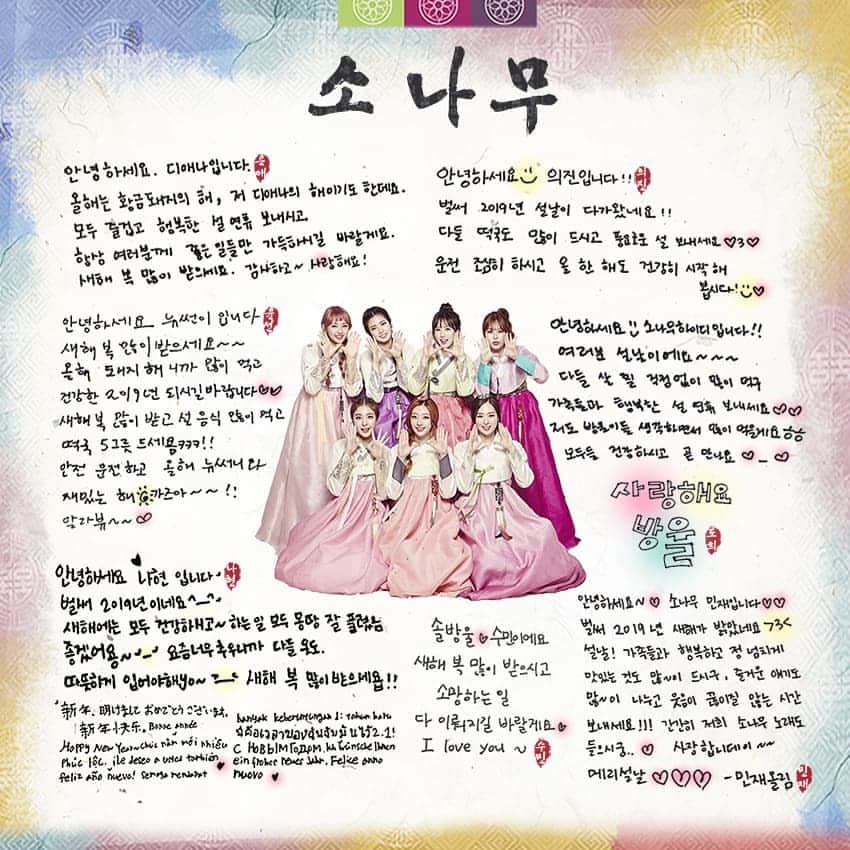 소나무
안녕하세요. 디애나입니다.
올해는 황금돼지의 해, 저 디애나의 해이기도 한데요.
모두 즐겁고 행복한 설 연휴 보내시고,
항상 여러분께 좋은 일들만 가득하시길 바랄게요.
새해 복 많이 받으세요. 감사하고~ 사랑해요!
안녕하세요 의진입니다!!
벌써 2019년 설날이 다가왔네요!!
다들 떡국도 많이 드시고 풍요로운 설 보내세요♡3♡
운전 조심히 하시고 올 한 해도 건강히 시작 해
봅시다!♡
안녕하세요 뉴썬이 입니다
새해 복 많이 받으세요~~
올해 돼지 해 니까 많이 먹고
건강한 2019년 되시길 바랍니다♡♡
새해 복 많이 받고 설 음식 많이 먹고
떡국 5그릇 드세욤ㅋㅋㅋ!!
안전 운전 하고 올해 뉴써니와
재밌는 해 카즈아~~!!
알라뷰~~♡
안녕하세요!! 소나무 하이디입니다!!
여러분 설날이에요~~~~
다들 살 찔 걱정 없이 많이 먹구
가족들과 행복한 설 연휴 보내세요♡♡
저도 방울이들 생각하면서 많이 먹을게요 ㅎㅎ
모두들 건강하시고 곧 만나요 ♡_♡
사랑해요
방울
도희
안녕하세요 나현 입니다
나현
벌써 2019년이네요^_^
새해에는 모두 건강하시고~ 하는 일 모두 몽땅 잘 풀렸음
좋겠어용~ 요즘 너무 추우니까 다들 옷도
따뜻하게 입어야해yo~ 새해 복 많이 받으세요!!
新年、明けましておめでとうございます。
新年快乐. Bonne année
Happy New Year~ chúc năm mới nhiều
phúc lộc. ¡le deseo a usted también
feliz año nuevo!
С НОВЫМ ГОДОМ.
ein frohes neues Jahr. Felice anno
nuovo ♡
솔방울♥수민이에요
새해 복 많이 받으시고
소망하는 일
다 이뤄지길 바랄게요♡
I love you~
수민
안녕하세요~♡ 소나무 민재입니다♡♡
벌써 2019년 새해가 밝았네요 >3<
설날! 가족들과 행복하고 정 넘치게
맛있는 것도 많~이 드시구, 즐거운 얘기도
많~이 나누고 웃음이 끊이질 않는 시간
보내세요!!! 간간히 저희 소나무 노래도
들으시궁.. ♡ 사랑합니데이~~
메리설날♡♡♡ -민재올림
민재